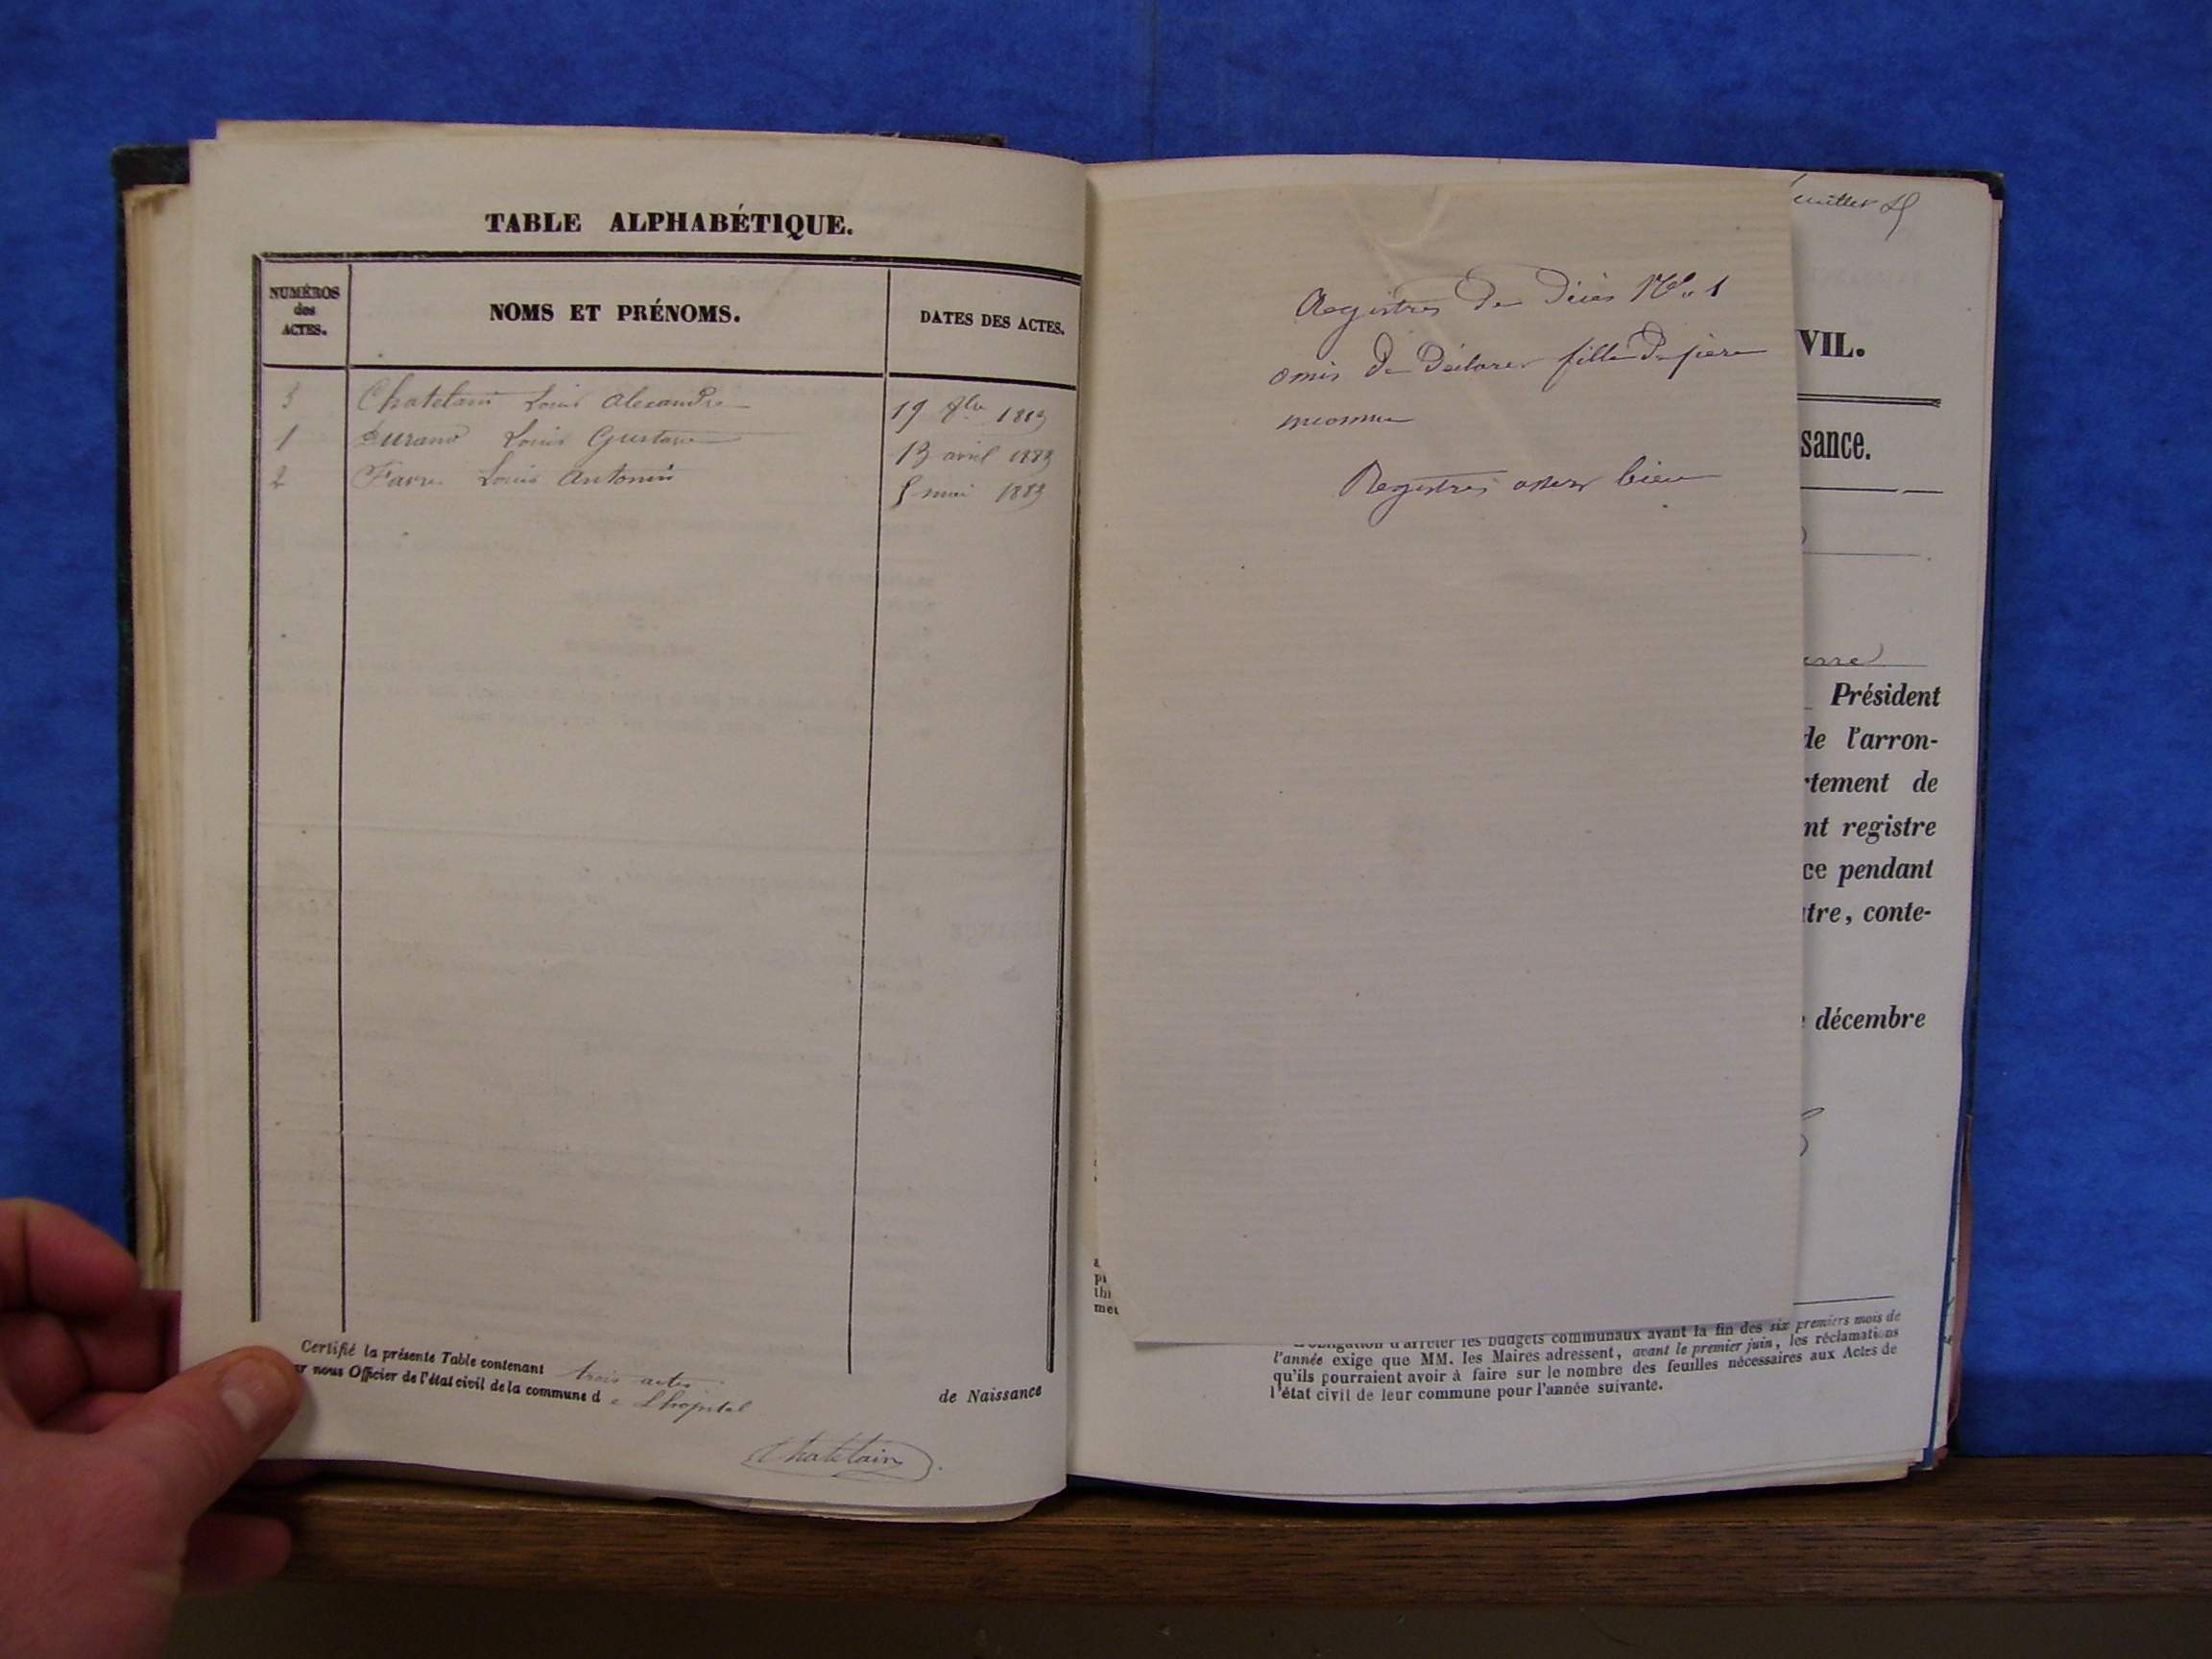 TABLE ALPHABÉTIQUE.
NUMÉROS
des
ACTES.
NOMS ET PRÉNOMS.
DATES DES ACTES.
3 Chatelain Louis Alexandre 19 8bre 1883
1 Durand Louis Gustave 13 avril 1883
2 Favre Louis Antonin 5 mai 1883
Certifié la présente Table contenant trois actes de Naissance
r nous Officier de l'état civil de la commune d e Lhopital
Chatelain
Registres de Décès No. 1
omis de déclarer fille de père
inconnu
Registres assez bien
VIL.
sance.
Président
de l'arron-
rtement de
nt registre
ce pendant
tre, conte-
décembre
met
obligation d'arrêter les budgets communaux avant la fin des six premiers mois de
l'année exige que MM. les Maires adressent, avant le premier juin, les réclamations
qu'ils pourraient avoir à faire sur le nombre des feuilles nécessaires aux Actes de
l'état civil de leur commune pour l'année suivante.